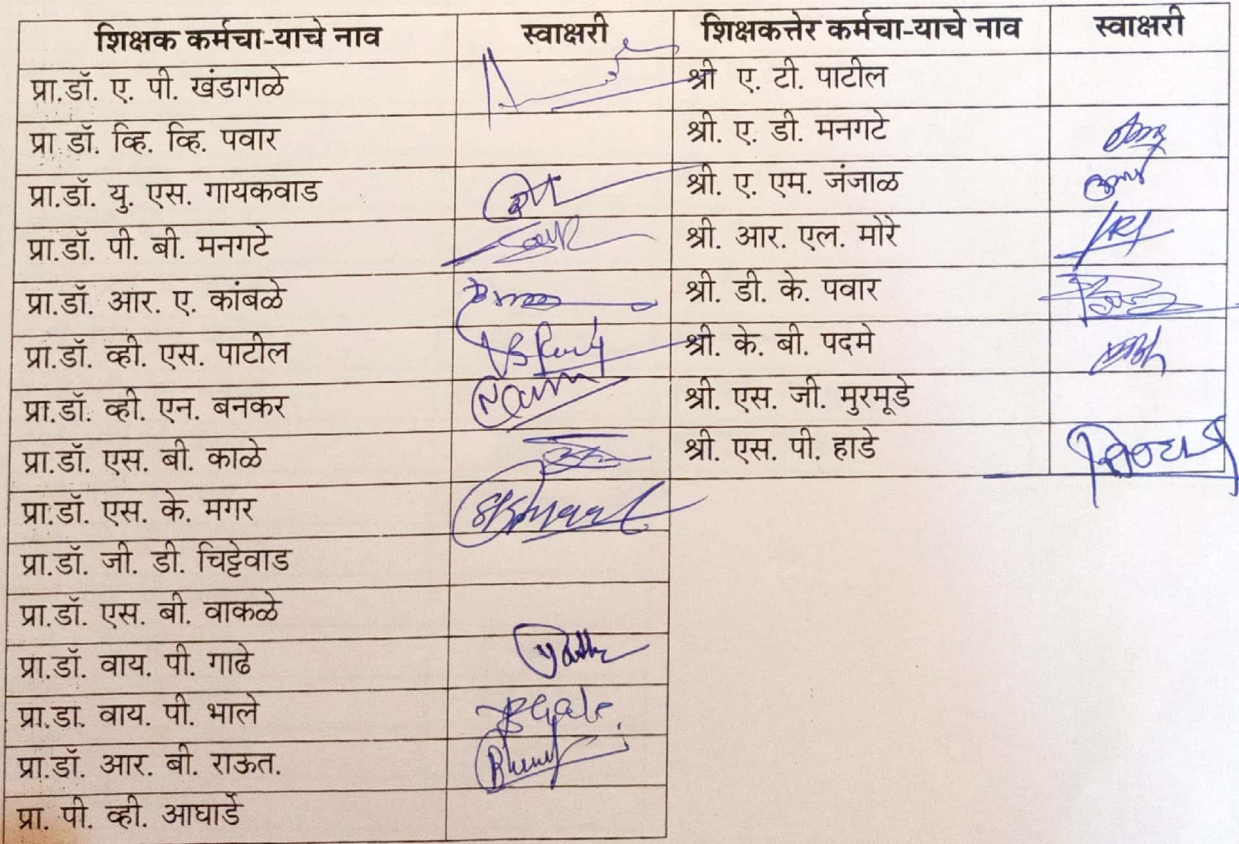 शिक्षक कर्मचा-याचे नाव स्वाक्षरी शिक्षकत्तेर कर्मचा-याचे नाव स्वाक्षरी
प्रा.डॉ. ए. पी. खंडागळे श्री ए. टी. पाटील
प्रा.डॉ. व्हि. व्हि. पवार श्री. ए. डी. मनगटे
प्रा.डॉ. यु. एस. गायकवाड श्री. ए. एम. जंजाळ
प्रा.डॉ. पी. बी. मनगटे श्री. आर. एल. मोरे
प्रा.डॉ. आर. ए. कांबळे श्री. डी. के. पवार
प्रा.डॉ. व्ही. एस. पाटील श्री. के. बी. पदमे
प्रा.डॉ. व्ही. एन. बनकर श्री. एस. जी. मुरमूडे
प्रा.डॉ. एस. बी. काळे श्री. एस. पी. हाडे
प्रा.डॉ. एस. के. मगर
प्रा.डॉ. जी. डी. चिट्टेवाड
प्रा.डॉ. एस. बी. वाकळे
प्रा.डॉ. वाय. पी. गाढे
प्रा.डा. वाय. पी. भाले
प्रा.डॉ. आर. बी. राऊत.
प्रा. पी. व्ही. आघार्डे